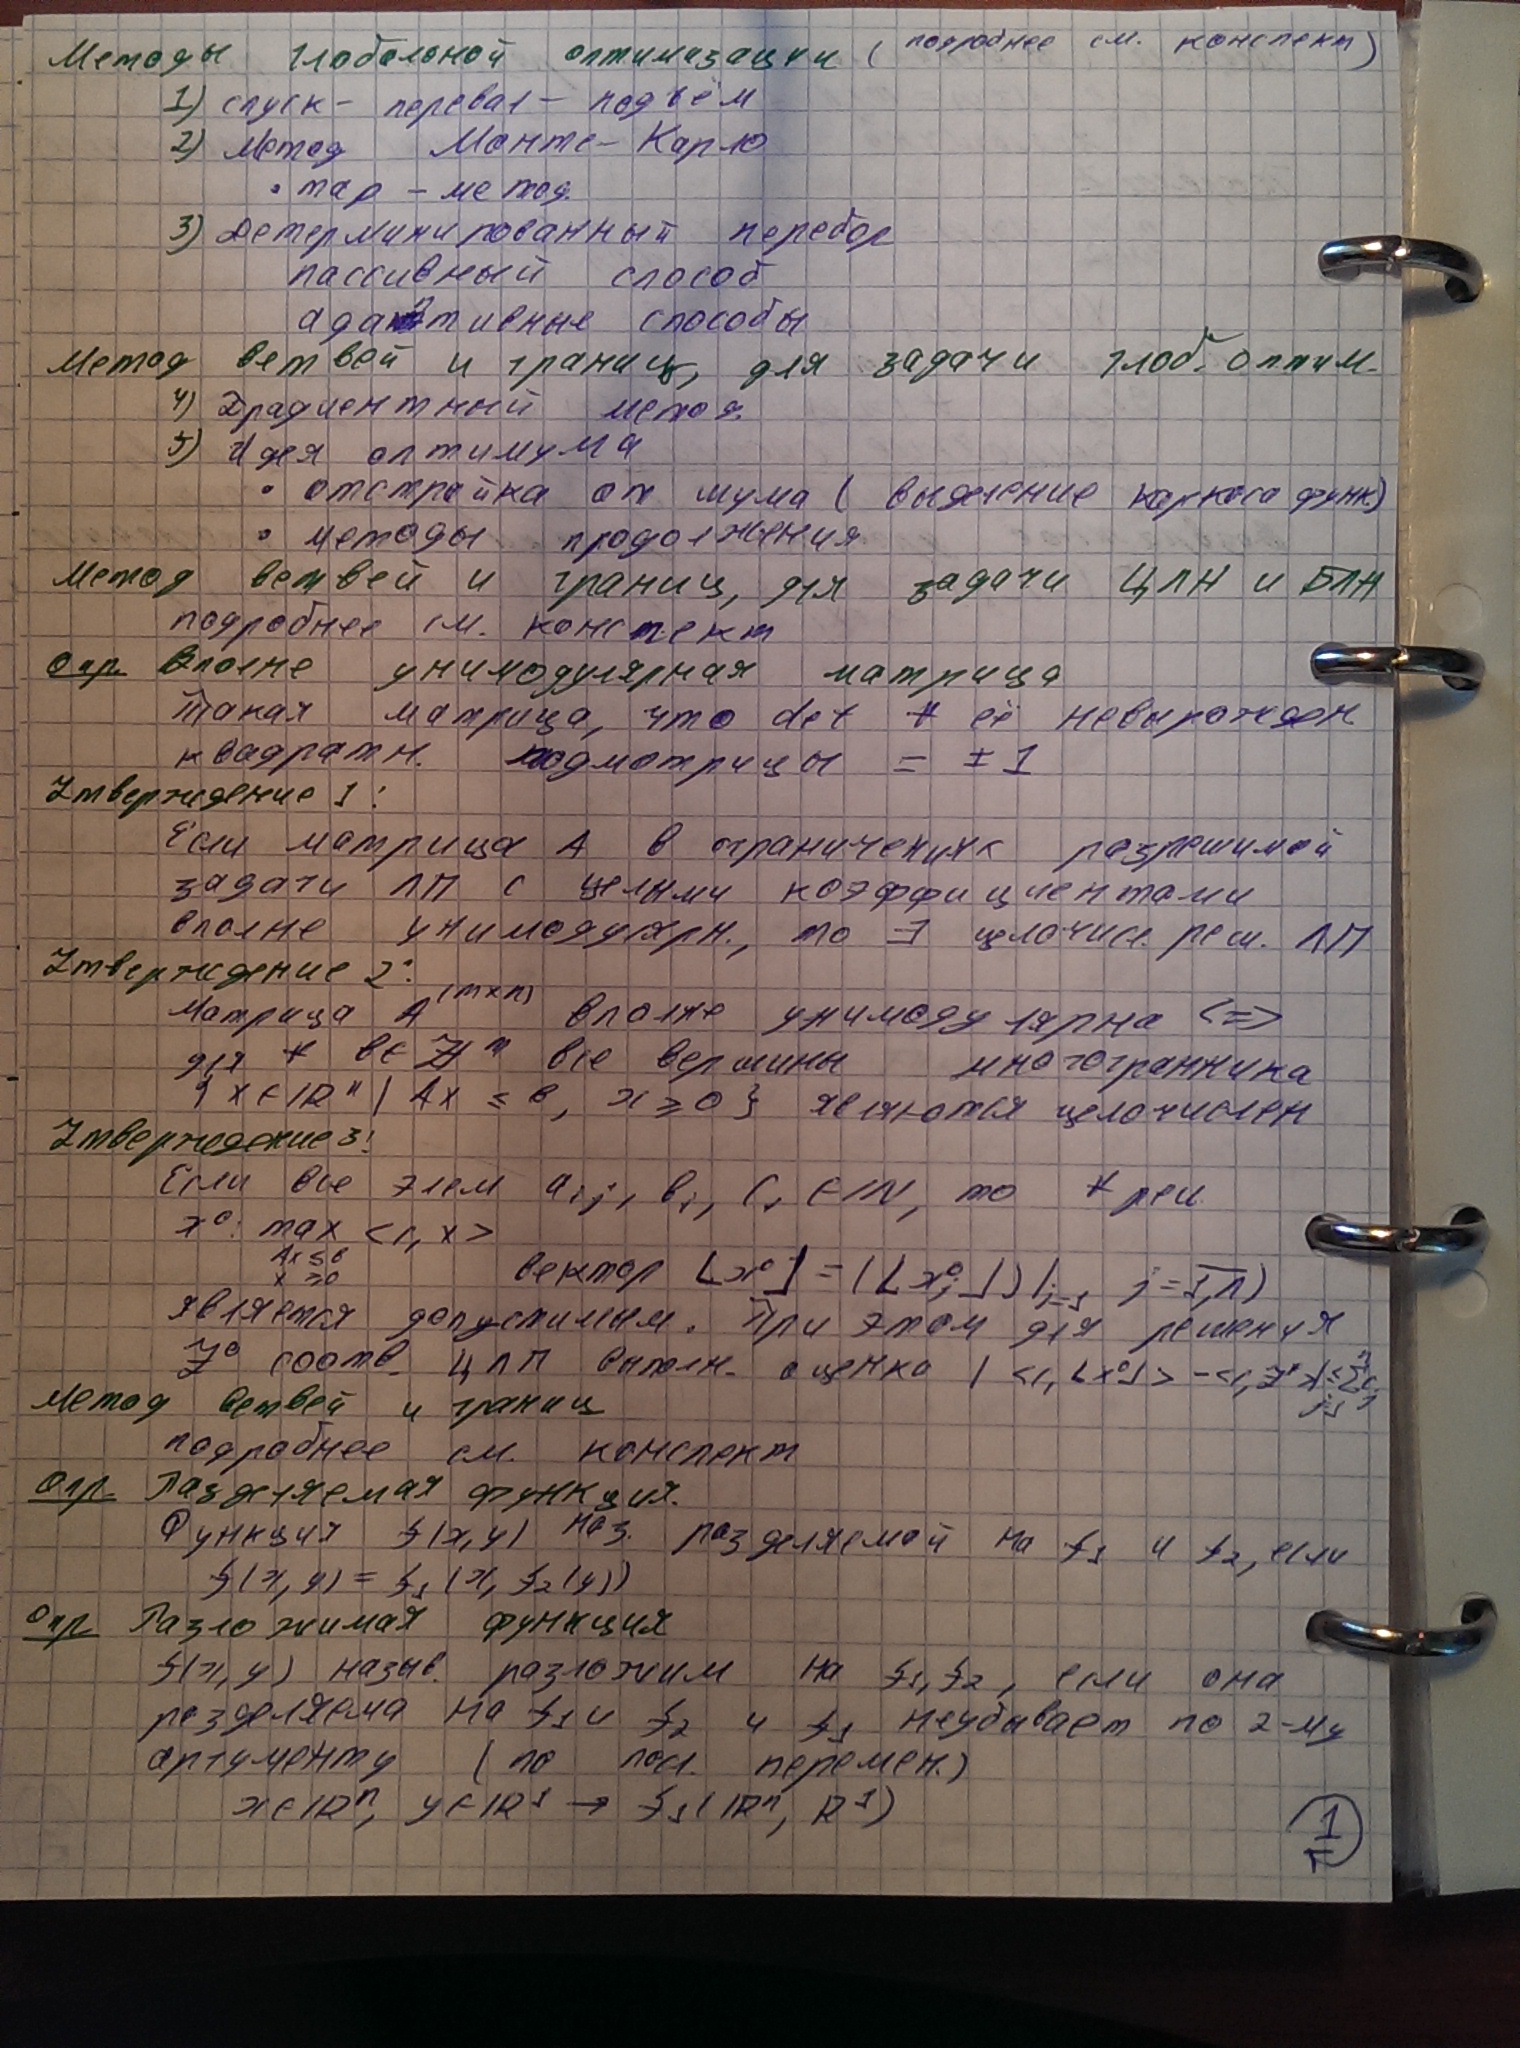 Методы глобальной оптимизации (подробнее см. конспект)
1) спуск - перевал - подъём
2) Метод Монте-Карло
• map - метод
3) Детерминированный перебор
пассивный способ
адаптивные способы
Метод ветвей и границ, для задачи глоб. оптим.
4) Градиентный метод
5) Идея оптимума
• отстройка от шума (выделение каркаса функ)
• методы продолжения
Метод ветвей и границ, для задачи ЦЛП и БЛП
подробнее см. конспект
Опр. Вполне унимодулярная матрица
Такая матрица, что det ∀ её невырожден
квадратн. подматрицы = ±1
Утверждение 1:
Если матрица A в ограничениях разрешимой
задачи ЛП с целыми коэффициентами
вполне унимодулярн., то ∃ целочисл. реш. ЛП
Утверждение 2:
Матрица A^(m×n) вполне унимодулярна <=>
для ∀ b∈ℤ^m все вершины многогранника
{x∈ℝ^n | Ax ≤ b, x ≥ 0} являются целочислен
Утверждение 3:
Если все элем a_ij, b_i, c_j ∈ℕ, то ∀ реш.
x⁰: max <c, x>
Ax ≤ b
x ≥ 0
вектор ⌊x⁰⌋ = (⌊x⁰_j⌋)|_j=1 j = 1,n)
является допустимым. При этом для решения
Z⁰ соотв. ЦЛП выполн. оценка |<c, ⌊x⁰⌋> - <c, Z*>| ≤ Σ_{j=1}^n c_j
Метод ветвей и границ
подробнее см. конспект
Опр. Разделяемая функция.
Функция f(x,y) наз. разделяемой на f₁ и f₂, если
f(x,y) = f₁(x, f₂(y))
Опр Разложимая функция
f(x,y) назыв. разложим на f₁, f₂, если она
разделяема на f₁ и f₂ и f₁ неубывает по 2-му
аргументу (по посл. перемен.)
x∈ℝ^n, y∈ℝ^1 → f₁(ℝ^n, ℝ^1)
1